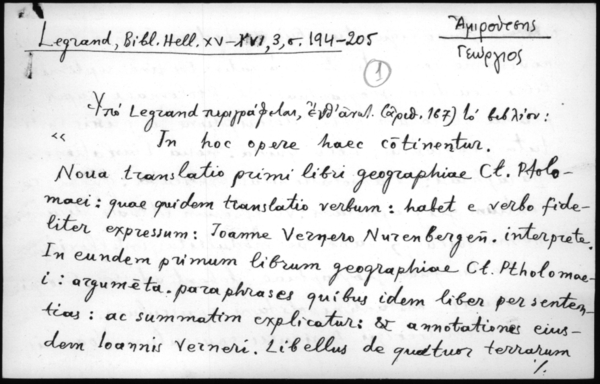 Legrand, Bibl. Hell. XV-XVI, 3, σ. 194-205
Ἀμιρούτσης
Γεώργιος
1
Ὑπό Legrand περιγράφεται, ἔνθ' ἀνωτ. (ἀριθ. 167) τό βιβλίον:
“ In hoc opere haec cōtinentur.
Noua translatio primi libri geographiae Cl. Ptolo-
maei: quae quidem translatio verbum: habet e verbo fide-
liter expressum: Joanne Vernero Nurenbergeñ. interprete.
In eundem primum librum geographiae Cl. Ptholomae-
i: argumēta. paraphrases quibus idem liber per senten-
tias: ac summatim explicatur: & annotationes eius-
dem Ioannis Verneri. Libellus de quatuor terrarum
./.